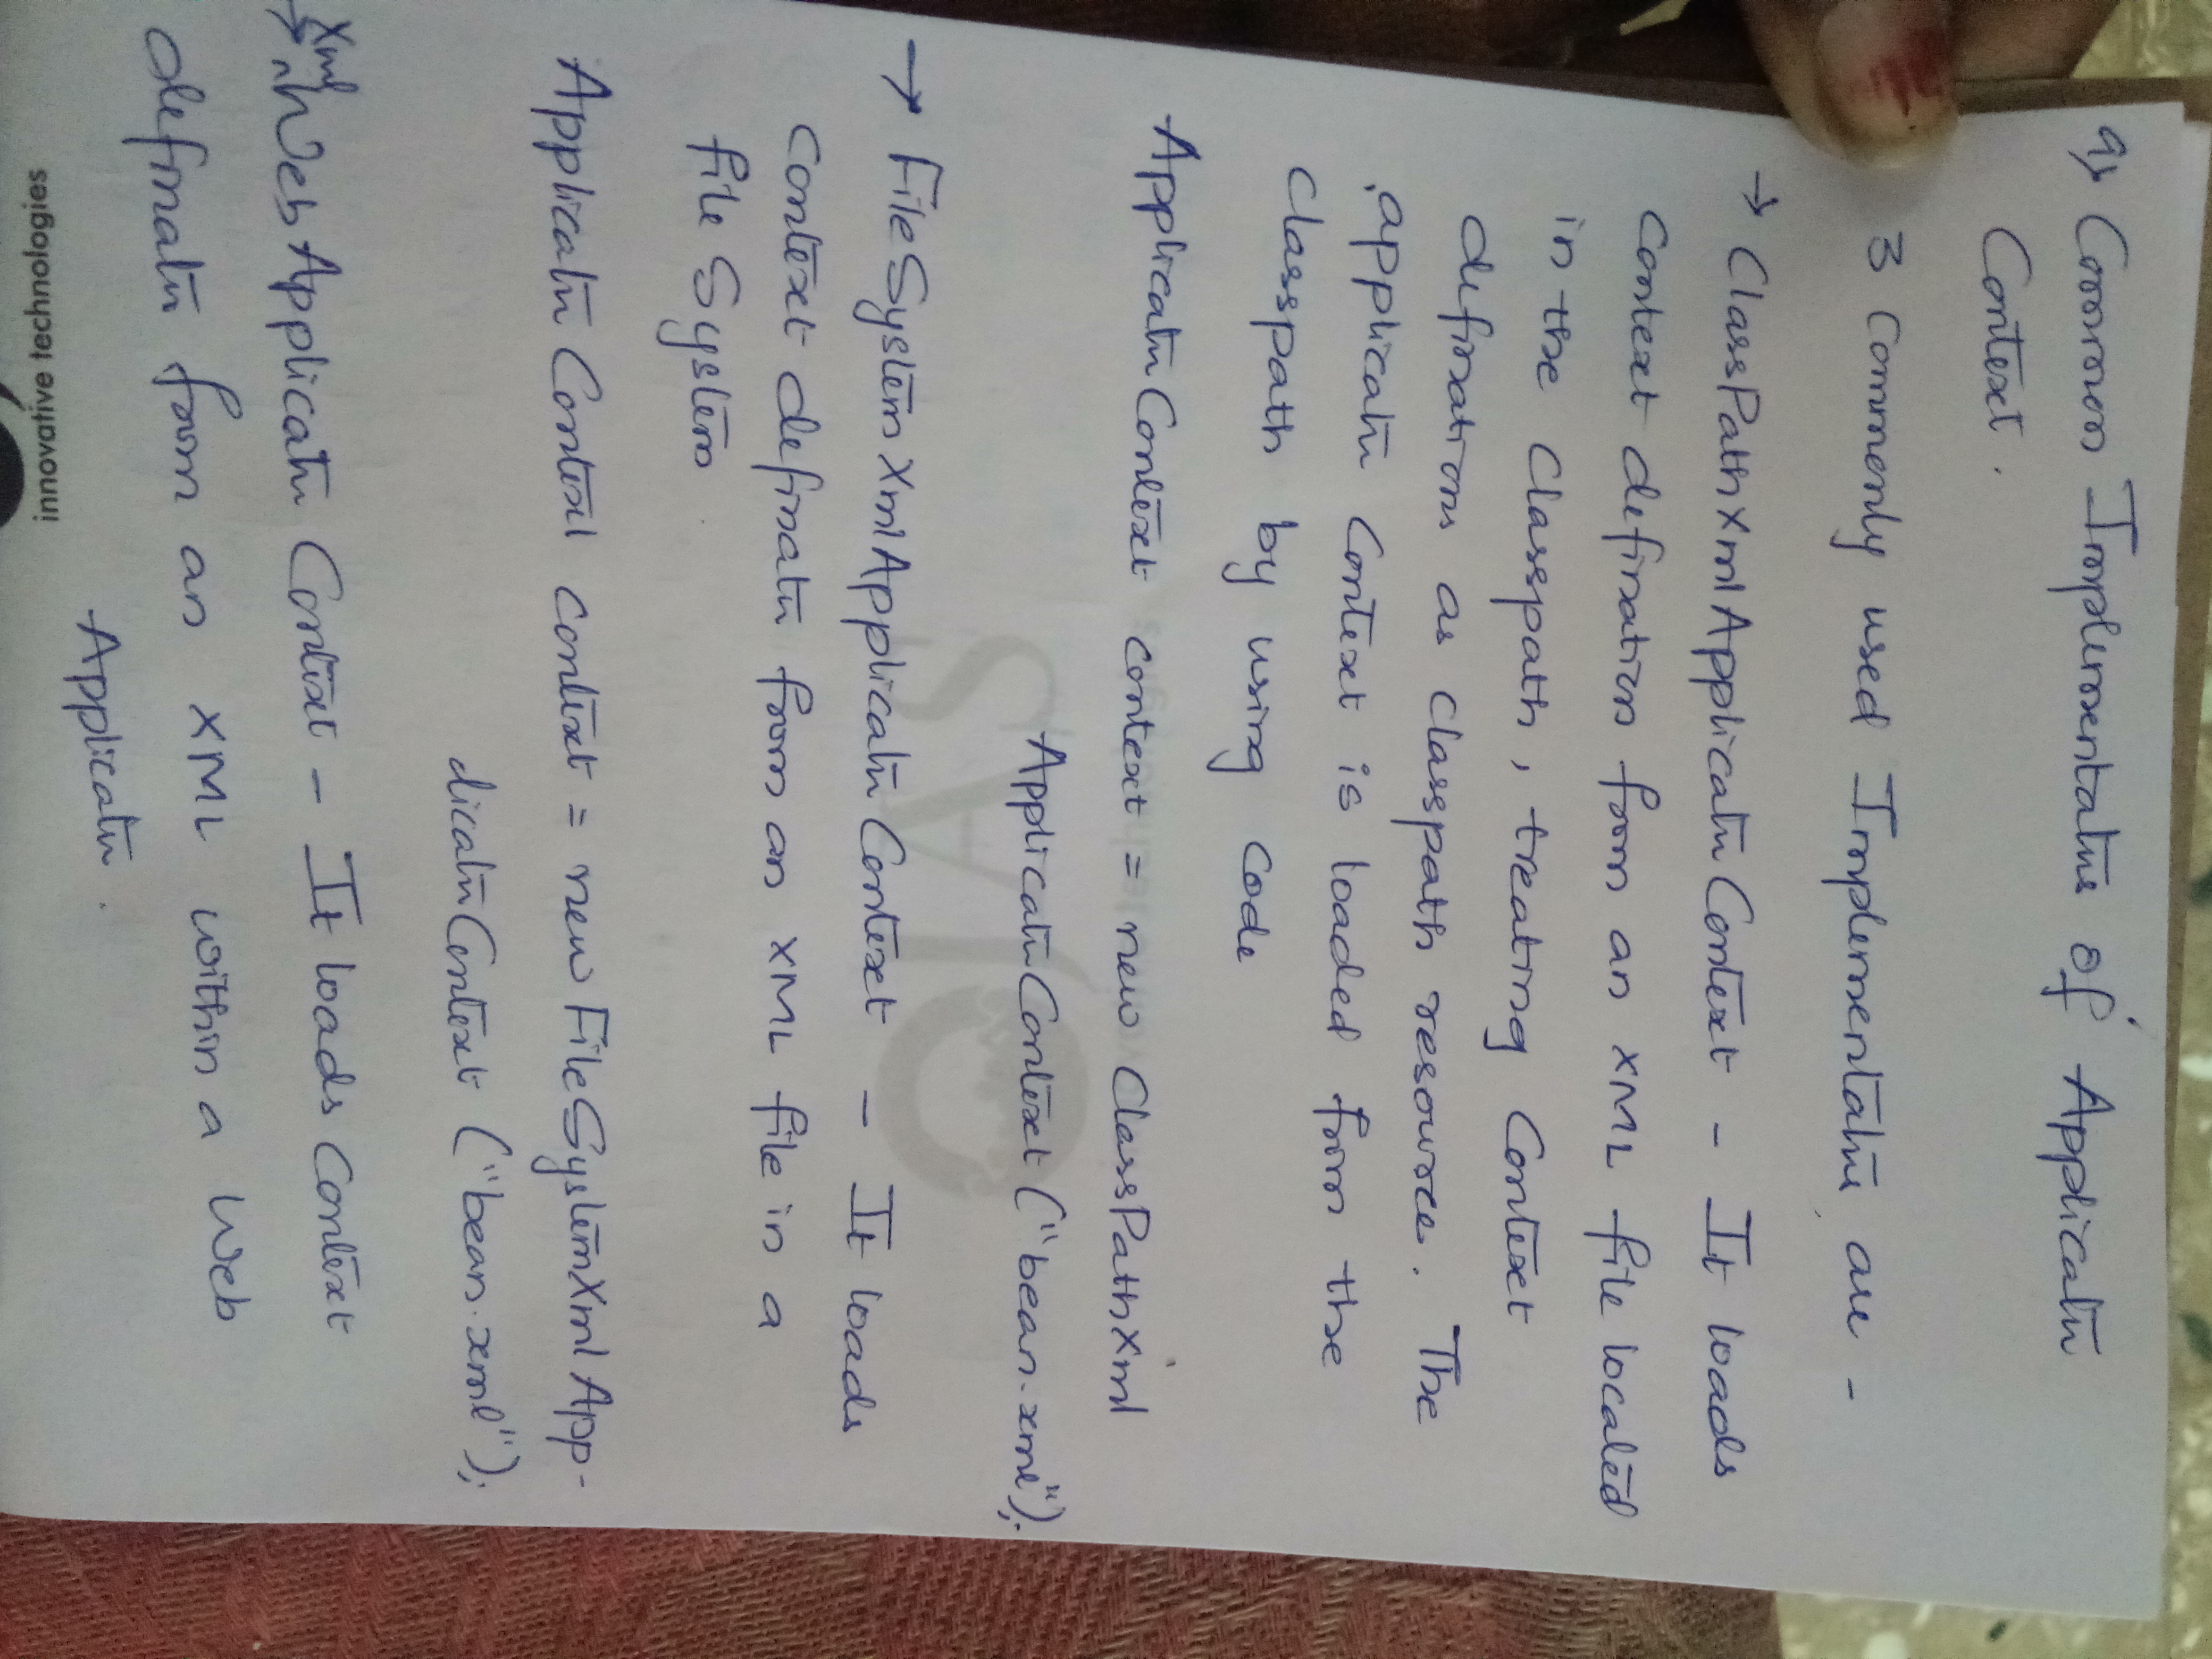 9) Common Implementations of Application
Context.
3 Commenly used Implementations are -
→ ClassPathXmlApplicationContext - It loads
context defination from an XML file located
in the classpath, treating context
definations as classpath resource. The
application context is loaded from the
classpath by using code
ApplicationContext context = new ClassPathXml
ApplicationContext ("bean.xml");
→ FileSystemXmlApplicationContext - It loads
context defination from an XML file in a
file System
ApplicationContext context = new FileSystemXmlApp-
dicationContext ("bean.xml");
→ Xml WebApplicationContext - It loads context
defination from an XML within a web
Application.
innovative technologies